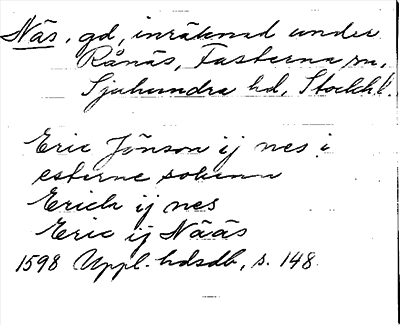 Näs, gd, inräknad under
Rånäs, Fasterna sn,
Sjuhundra hd, Stockh. l.
Eric Jönson ij nes i
esterne sokenn
Erich ij nes
Eric ij Nääs
1598 Uppl. hdsdb, s. 148.